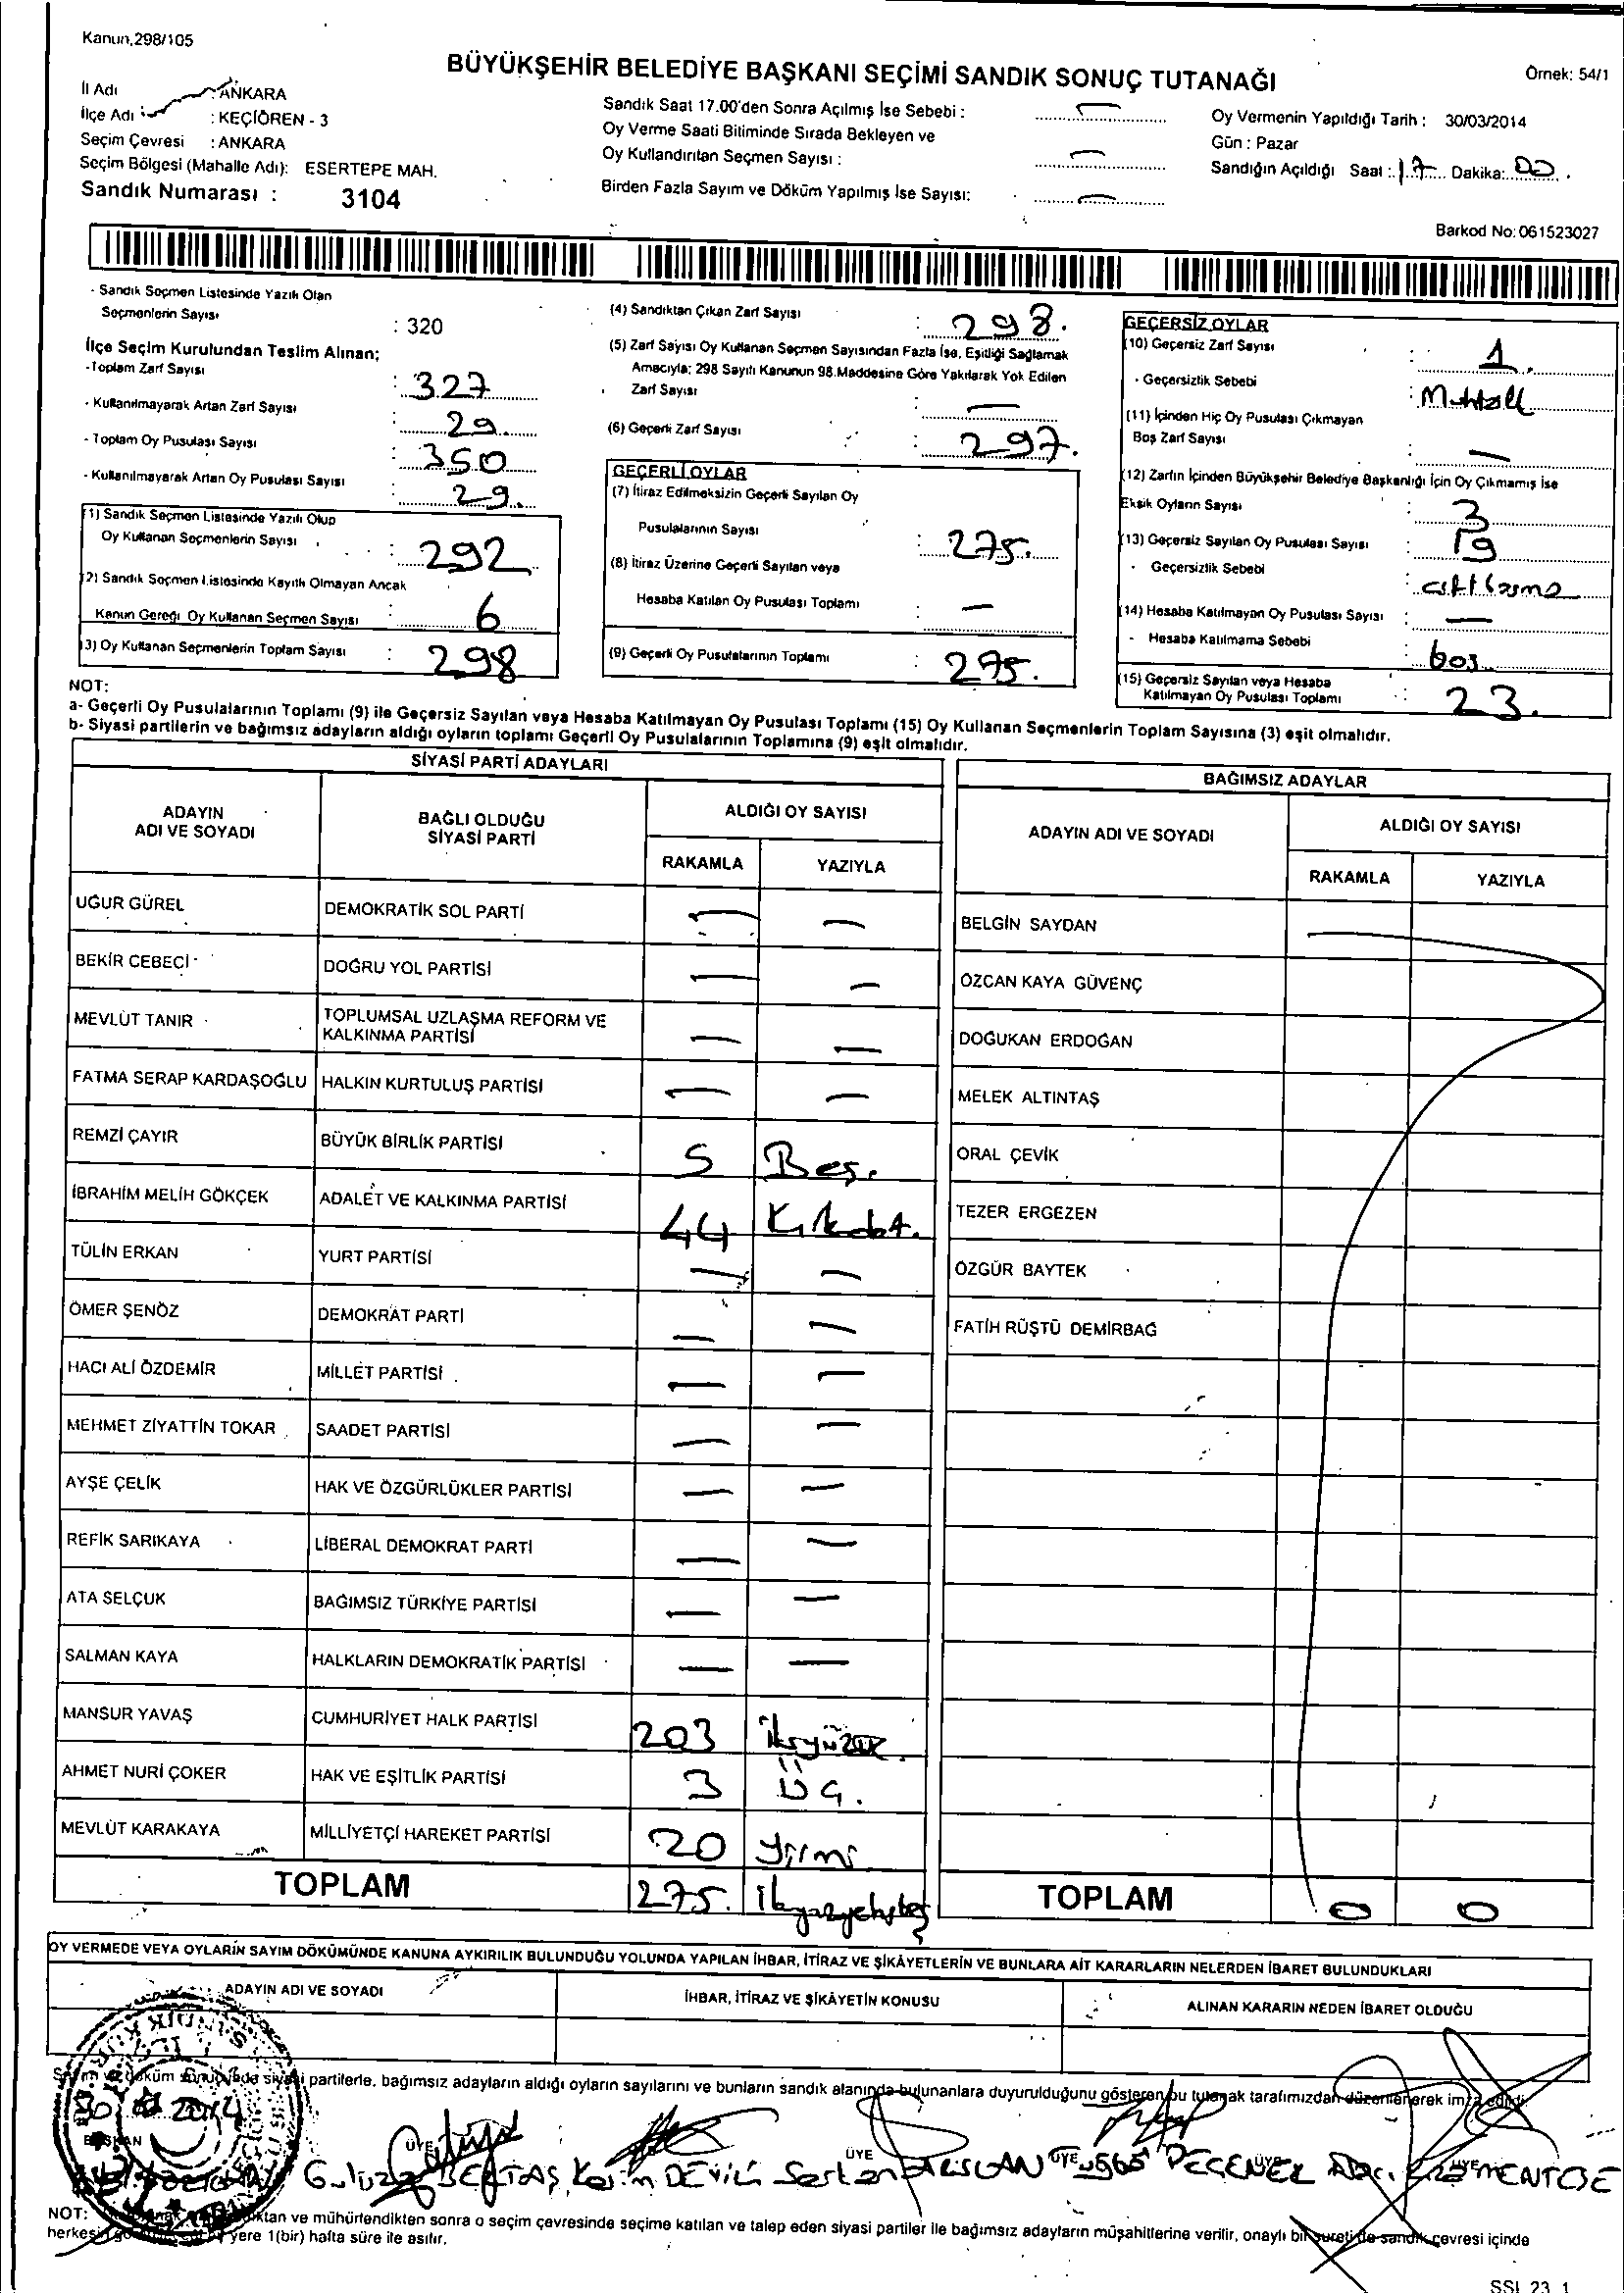 Kanun,298/105
BÜYÜKŞEHİR BELEDİYE BAŞKANI SEÇİMİ SANDIK SONUÇ TUTANAĞI
Örnek: 54/1
İl Adı : ANKARA
İlçe Adı : KEÇİÖREN - 3
Seçim Çevresi : ANKARA
Seçim Bölgesi (Mahalle Adı): ESERTEPE MAH.
Sandık Numarası : 3104
Sandık Saat 17.00'den Sonra Açılmış İse Sebebi : —
Oy Verme Saati Bitiminde Sırada Bekleyen ve
Oy Kullandırılan Seçmen Sayısı : —
Birden Fazla Sayım ve Döküm Yapılmış İse Sayısı: —
Oy Vermenin Yapıldığı Tarih : 30/03/2014
Gün : Pazar
Sandığın Açıldığı Saat : 17 Dakika: 00
Barkod No: 061523027
- Sandık Seçmen Listesinde Yazılı Olan
Seçmenlerin Sayısı : 320
İlçe Seçim Kurulundan Teslim Alınan;
-Toplam Zarf Sayısı : 327
- Kullanılmayarak Artan Zarf Sayısı : 29
- Toplam Oy Pusulası Sayısı : 350
- Kullanılmayarak Artan Oy Pusulası Sayısı : 29.
(1) Sandık Seçmen Listesinde Yazılı Olup
Oy Kullanan Seçmenlerin Sayısı : 292
(2) Sandık Seçmen Listesinde Kayıtlı Olmayan Ancak
Kanun Gereği Oy Kullanan Seçmen Sayısı : 6
(3) Oy Kullanan Seçmenlerin Toplam Sayısı : 298
(4) Sandıktan Çıkan Zarf Sayısı : 298.
(5) Zarf Sayısı Oy Kullanan Seçmen Sayısından Fazla İse, Eşitliği Sağlamak
Amacıyla; 298 Sayılı Kanunun 98.Maddesine Göre Yakılarak Yok Edilen
Zarf Sayısı : —
(6) Geçerli Zarf Sayısı : 297.
GEÇERLİ OYLAR
(7) İtiraz Edilmeksizin Geçerli Sayılan Oy
Pusulalarının Sayısı : 275.
(8) İtiraz Üzerine Geçerli Sayılan veya
Hesaba Katılan Oy Pusulası Toplamı : —
(9) Geçerli Oy Pusulalarının Toplamı : 275.
GEÇERSİZ OYLAR
(10) Geçersiz Zarf Sayısı : 1.
- Geçersizlik Sebebi :
(11) İçinden Hiç Oy Pusulası Çıkmayan
Boş Zarf Sayısı : —
(12) Zarfın İçinden Büyükşehir Belediye Başkanlığı İçin Oy Çıkmamış İse
Eksik Oyların Sayısı : 3
(13) Geçersiz Sayılan Oy Pusulası Sayısı : 19
- Geçersizlik Sebebi :
(14) Hesaba Katılmayan Oy Pusulası Sayısı : —
- Hesaba Katılmama Sebebi : boş
(15) Geçersiz Sayılan veya Hesaba
Katılmayan Oy Pusulası Toplamı : 23.
NOT:
a- Geçerli Oy Pusulalarının Toplamı (9) ile Geçersiz Sayılan veya Hesaba Katılmayan Oy Pusulası Toplamı (15) Oy Kullanan Seçmenlerin Toplam Sayısına (3) eşit olmalıdır.
b- Siyasi partilerin ve bağımsız adayların aldığı oyların toplamı Geçerli Oy Pusulalarının Toplamına (9) eşit olmalıdır.
SİYASİ PARTİ ADAYLARI
ADAYIN ADI VE SOYADI
BAĞLI OLDUĞU SİYASİ PARTİ
ALDIĞI OY SAYISI
RAKAMLA YAZIYLA
UĞUR GÜREL DEMOKRATİK SOL PARTİ — —
BEKİR CEBECİ DOĞRU YOL PARTİSİ — —
MEVLÜT TANIR TOPLUMSAL UZLAŞMA REFORM VE KALKINMA PARTİSİ — —
FATMA SERAP KARDAŞOĞLU HALKIN KURTULUŞ PARTİSİ — —
REMZİ ÇAYIR BÜYÜK BİRLİK PARTİSİ 5 Beş.
İBRAHİM MELİH GÖKÇEK ADALET VE KALKINMA PARTİSİ 44 Kırkdört.
TÜLİN ERKAN YURT PARTİSİ — —
ÖMER ŞENÖZ DEMOKRAT PARTİ — —
HACI ALİ ÖZDEMİR MİLLET PARTİSİ — —
MEHMET ZİYATTİN TOKAR SAADET PARTİSİ — —
AYŞE ÇELİK HAK VE ÖZGÜRLÜKLER PARTİSİ — —
REFİK SARIKAYA LİBERAL DEMOKRAT PARTİ — —
ATA SELÇUK BAĞIMSIZ TÜRKİYE PARTİSİ — —
SALMAN KAYA HALKLARIN DEMOKRATİK PARTİSİ — —
MANSUR YAVAŞ CUMHURİYET HALK PARTİSİ 203 ikiyüzüç
AHMET NURİ ÇOKER HAK VE EŞİTLİK PARTİSİ 3 ÜÇ.
MEVLÜT KARAKAYA MİLLİYETÇİ HAREKET PARTİSİ 20 yirmi
TOPLAM 275. ikiyüzyetmişbeş
BAĞIMSIZ ADAYLAR
ADAYIN ADI VE SOYADI
ALDIĞI OY SAYISI
RAKAMLA YAZIYLA
BELGİN SAYDAN
ÖZCAN KAYA GÜVENÇ
DOĞUKAN ERDOĞAN
MELEK ALTINTAŞ
ORAL ÇEVİK
TEZER ERGEZEN
ÖZGÜR BAYTEK
FATİH RÜŞTÜ DEMİRBAĞ
TOPLAM 0 0
OY VERMEDE VEYA OYLARIN SAYIM DÖKÜMÜNDE KANUNA AYKIRILIK BULUNDUĞU YOLUNDA YAPILAN İHBAR, İTİRAZ VE ŞİKÂYETLERİN VE BUNLARA AİT KARARLARIN NELERDEN İBARET BULUNDUKLARI
ADAYIN ADI VE SOYADI
İHBAR, İTİRAZ VE ŞİKÂYETİN KONUSU
ALINAN KARARIN NEDEN İBARET OLDUĞU
Sayım ve döküm sonucunda siyasi partilerle, bağımsız adayların aldığı oyların sayılarını ve bunların sandık alanında bulunanlara duyurulduğunu gösteren bu tutanak tarafımızdan düzenlenerek imza edildi.
30 2014
BAŞKAN ÜYE ÜYE ÜYE ÜYE ÜYE
BEKTAŞ Kerim DEVİLİ Serkan ARSLAN PEÇENEK MENTEŞE
NOT: ve mühürlendikten sonra o seçim çevresinde seçime katılan ve talep eden siyasi partiler ile bağımsız adayların müşahitlerine verilir, onaylı bir sureti de sandık çevresi içinde
herkesin yere 1(bir) hafta süre ile asılır.
SSI 23 1